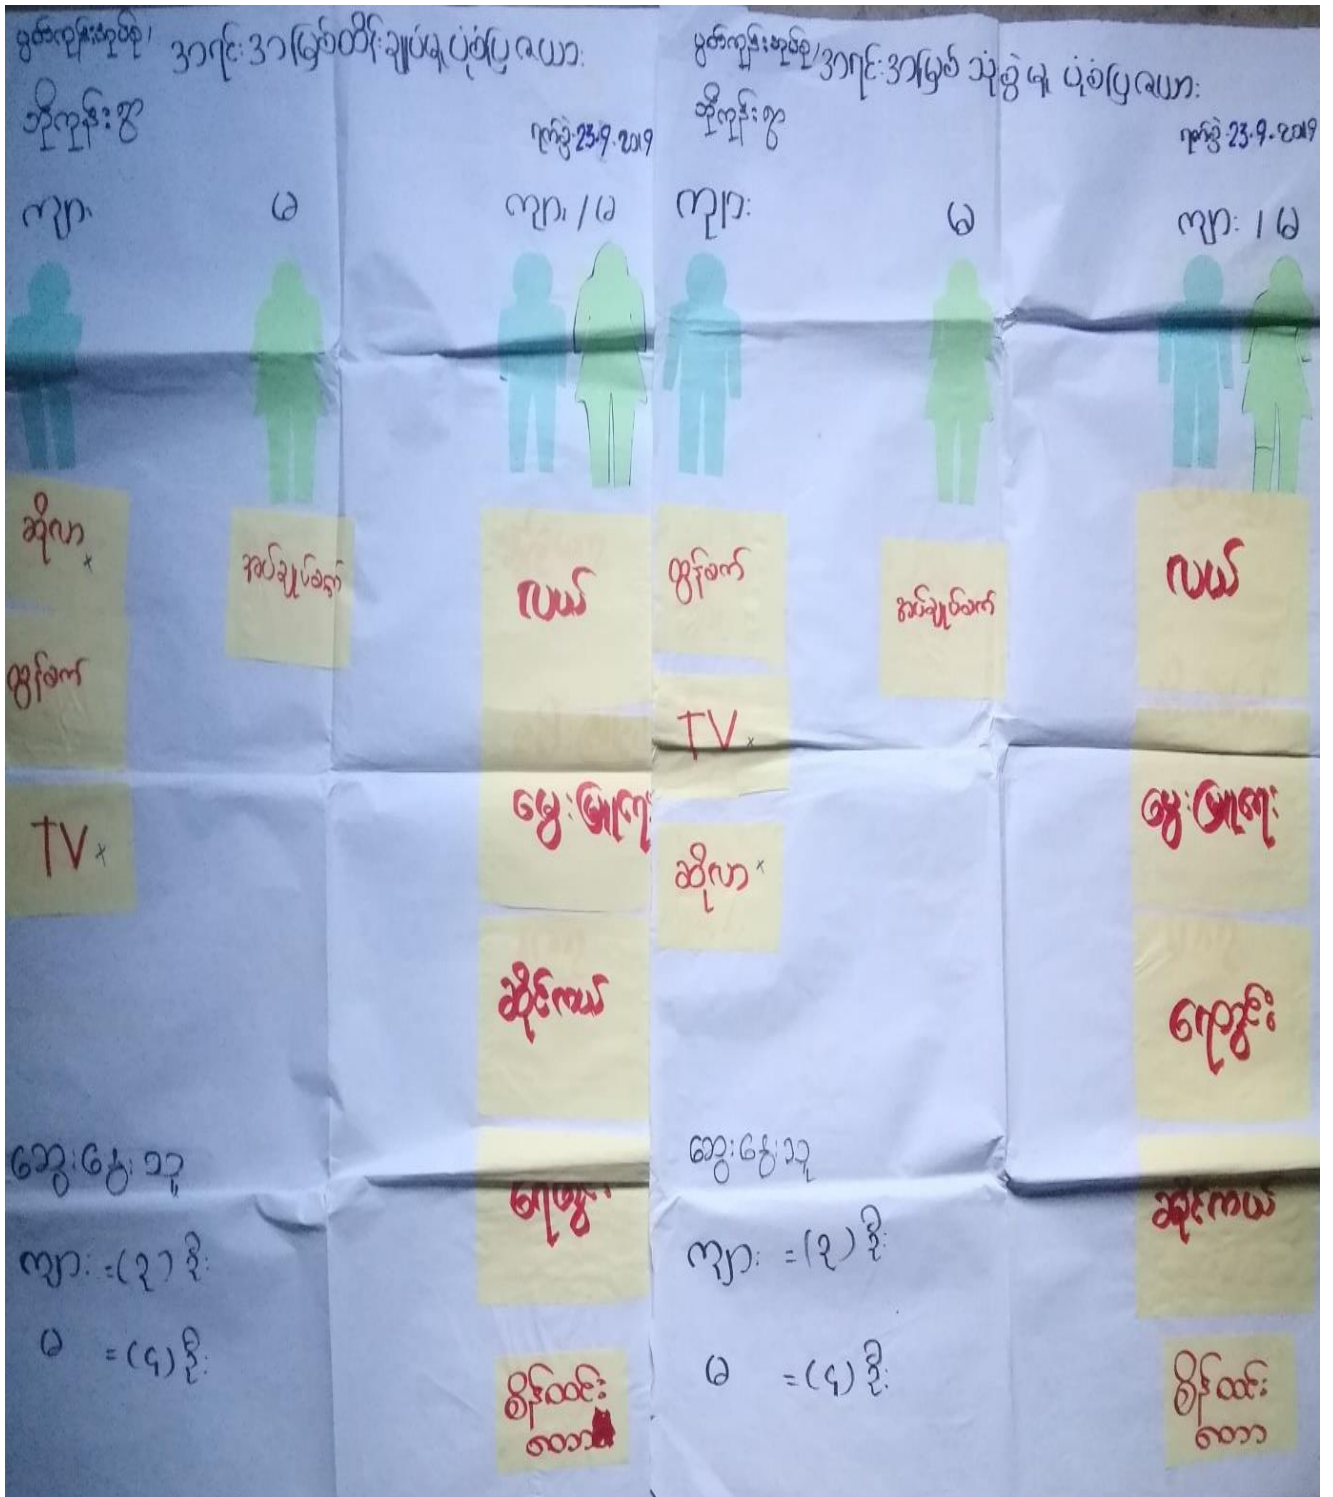 မွတ်ကုန်းအုပ်စု၊ အရင်းအမြစ်ထိန်းချုပ်မှုပုံစံပြဇယား
ဘိုကုန်းရွာ
ရက်စွဲ-23.9.2019
ကျား
မ
ကျား / မ
ဆိုလာ ×
ထွန်စက်
TV ×
အပ်ချုပ်စက်
လယ်
မွေးမြူရေး
ဆိုင်ကယ်
ရေတွင်း
စိန်ထင်း
တော
ဆွေးနွေးသူ
ကျား = (၃) ဦး
မ = (၄) ဦး
မွတ်ကုန်းအုပ်စု၊ အရင်းအမြစ်သုံးစွဲမှု ပုံစံပြဇယား
ဘိုကုန်းရွာ
ရက်စွဲ-23.9.2019
ကျား
မ
ကျား / မ
ထွန်စက်
TV ×
ဆိုလာ ×
အပ်ချုပ်စက်
လယ်
မွေးမြူရေး
ရေတွင်း
ဆိုင်ကယ်
စိန်ထင်း
တော
ဆွေးနွေးသူ
ကျား = (၃) ဦး
မ = (၄) ဦး